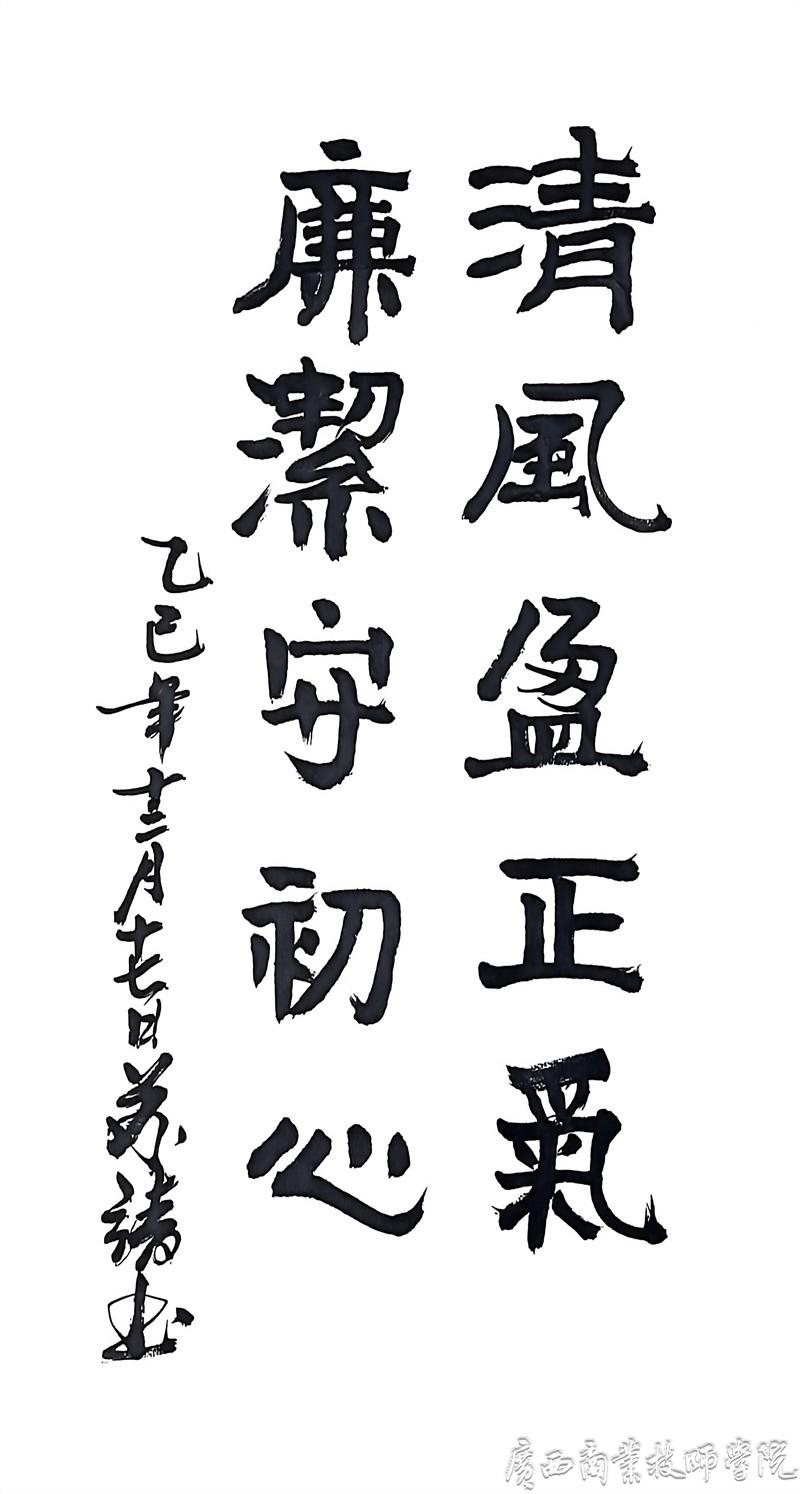 清風盈正氣
廉潔守初心
乙巳年十二月十七日苏靖书
廣西商業技師學院